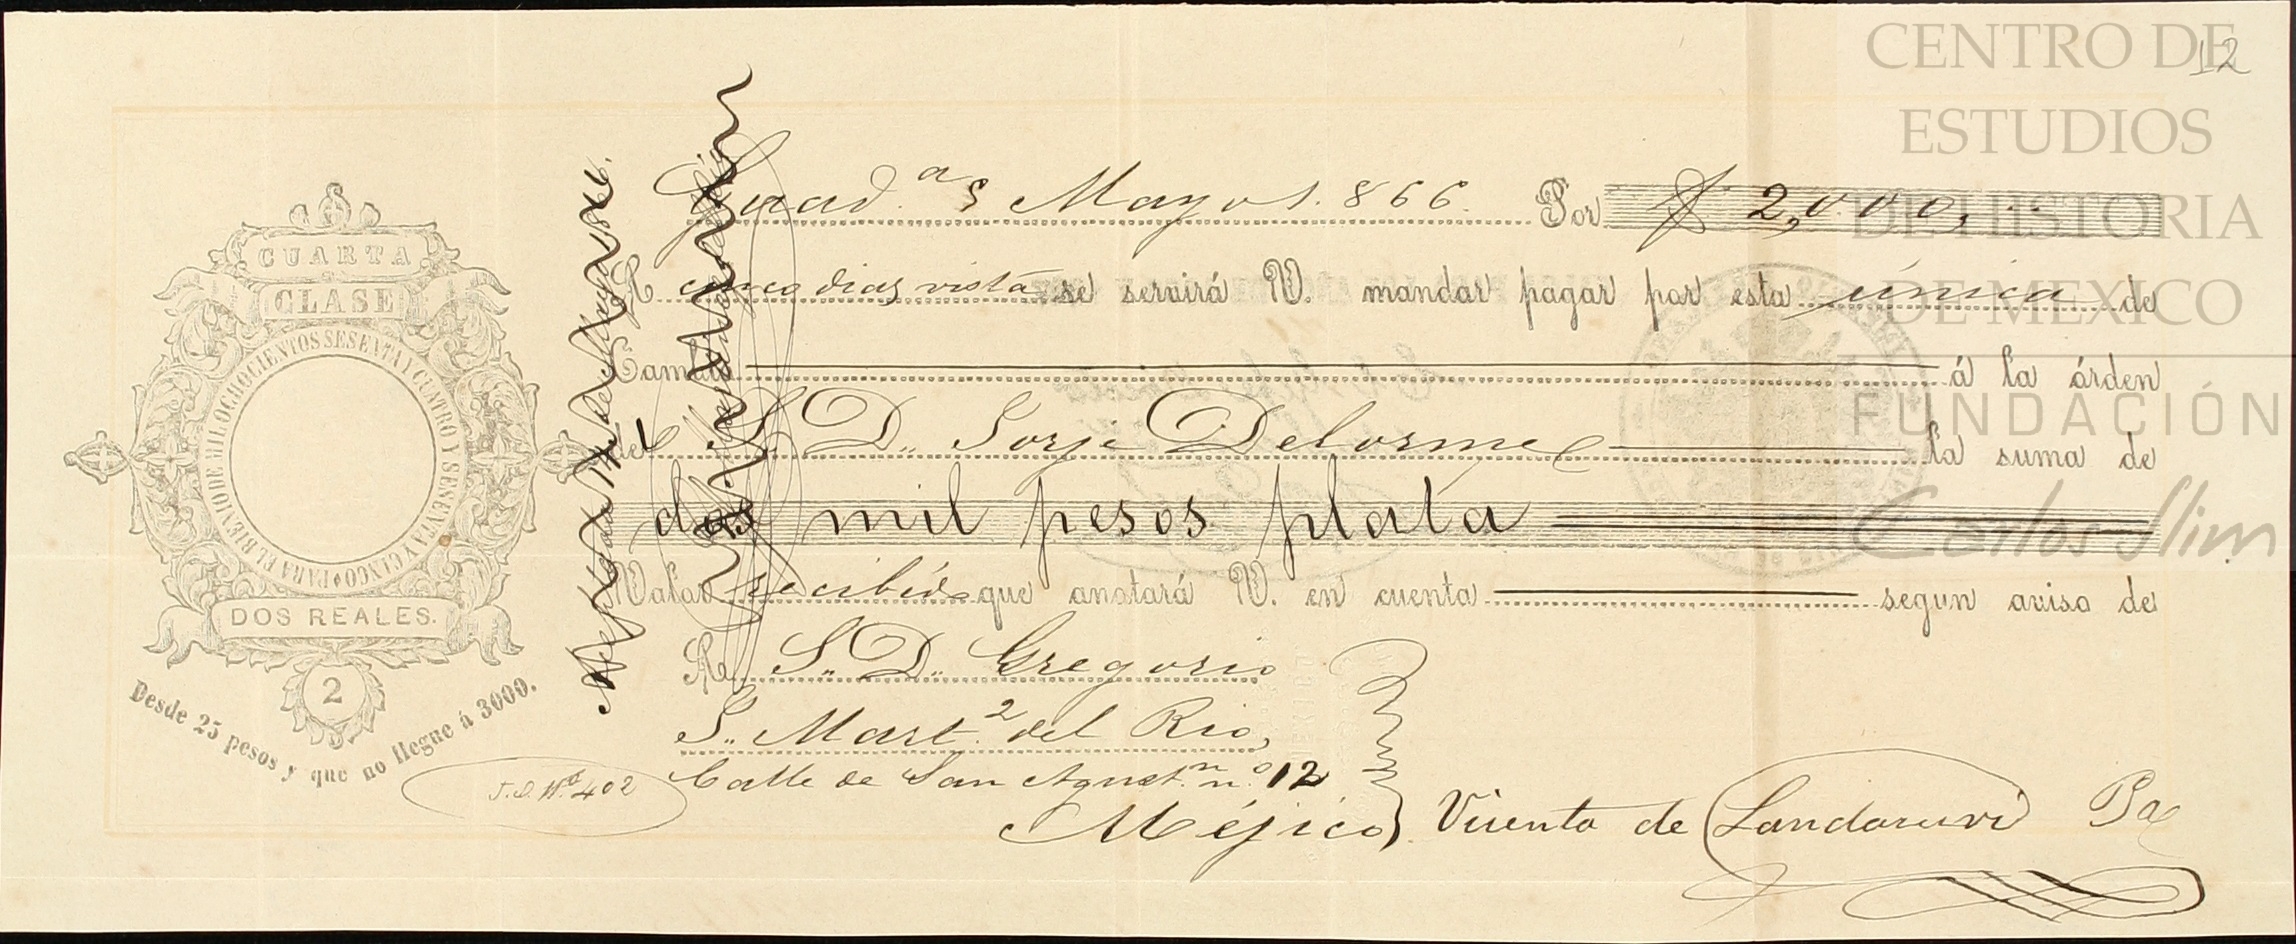 12
CENTRO DE
ESTUDIOS
DE HISTORIA
DE MEXICO
FUNDACIÓN
Carlos Slim
CUARTA
CLASE
PARA EL BIENIO DE MIL OCHOCIENTOS SESENTA Y CUATRO Y SESENTA Y CINCO
DOS REALES.
2
Desde 25 pesos y que no llegue á 3000.
J.D. Nº 402
Guad.a 5 Mayo 1.866. Por $ 2,000,
A cinco dias vista se servirá V. mandar pagar por esta única de
Cambio á la órden
del S. D. Jorje Delorme la suma de
dos mil pesos plata
Valor recibido que anotará V. en cuenta segun aviso de
Al S. D. Gregorio
S. Mart.z del Rio,
Calle de San Agust.n n.o 12
Méjico.
Vicente de Landaruri